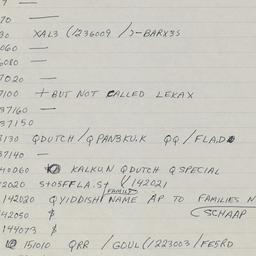 70 —
30 XAL3 (1236009 /)-BARX3S
060 —
6080 —
7020 —
7100 + BUT NOT CALLED LEKAX
37160 —
37150
3130 QDUTCH / QPAN3KU.K QQ / FLAD
37140 —
40060 KALKU.N QDUTCH QSPECIAL
2020 S+OSFFLA.S+ (142021
142020 QYIDDISH FAMILY NAME AP TO FAMILIES N
42050 $ (SCHAAP
144073 $
151010 QRR / GDUL(1223003 / FESRD